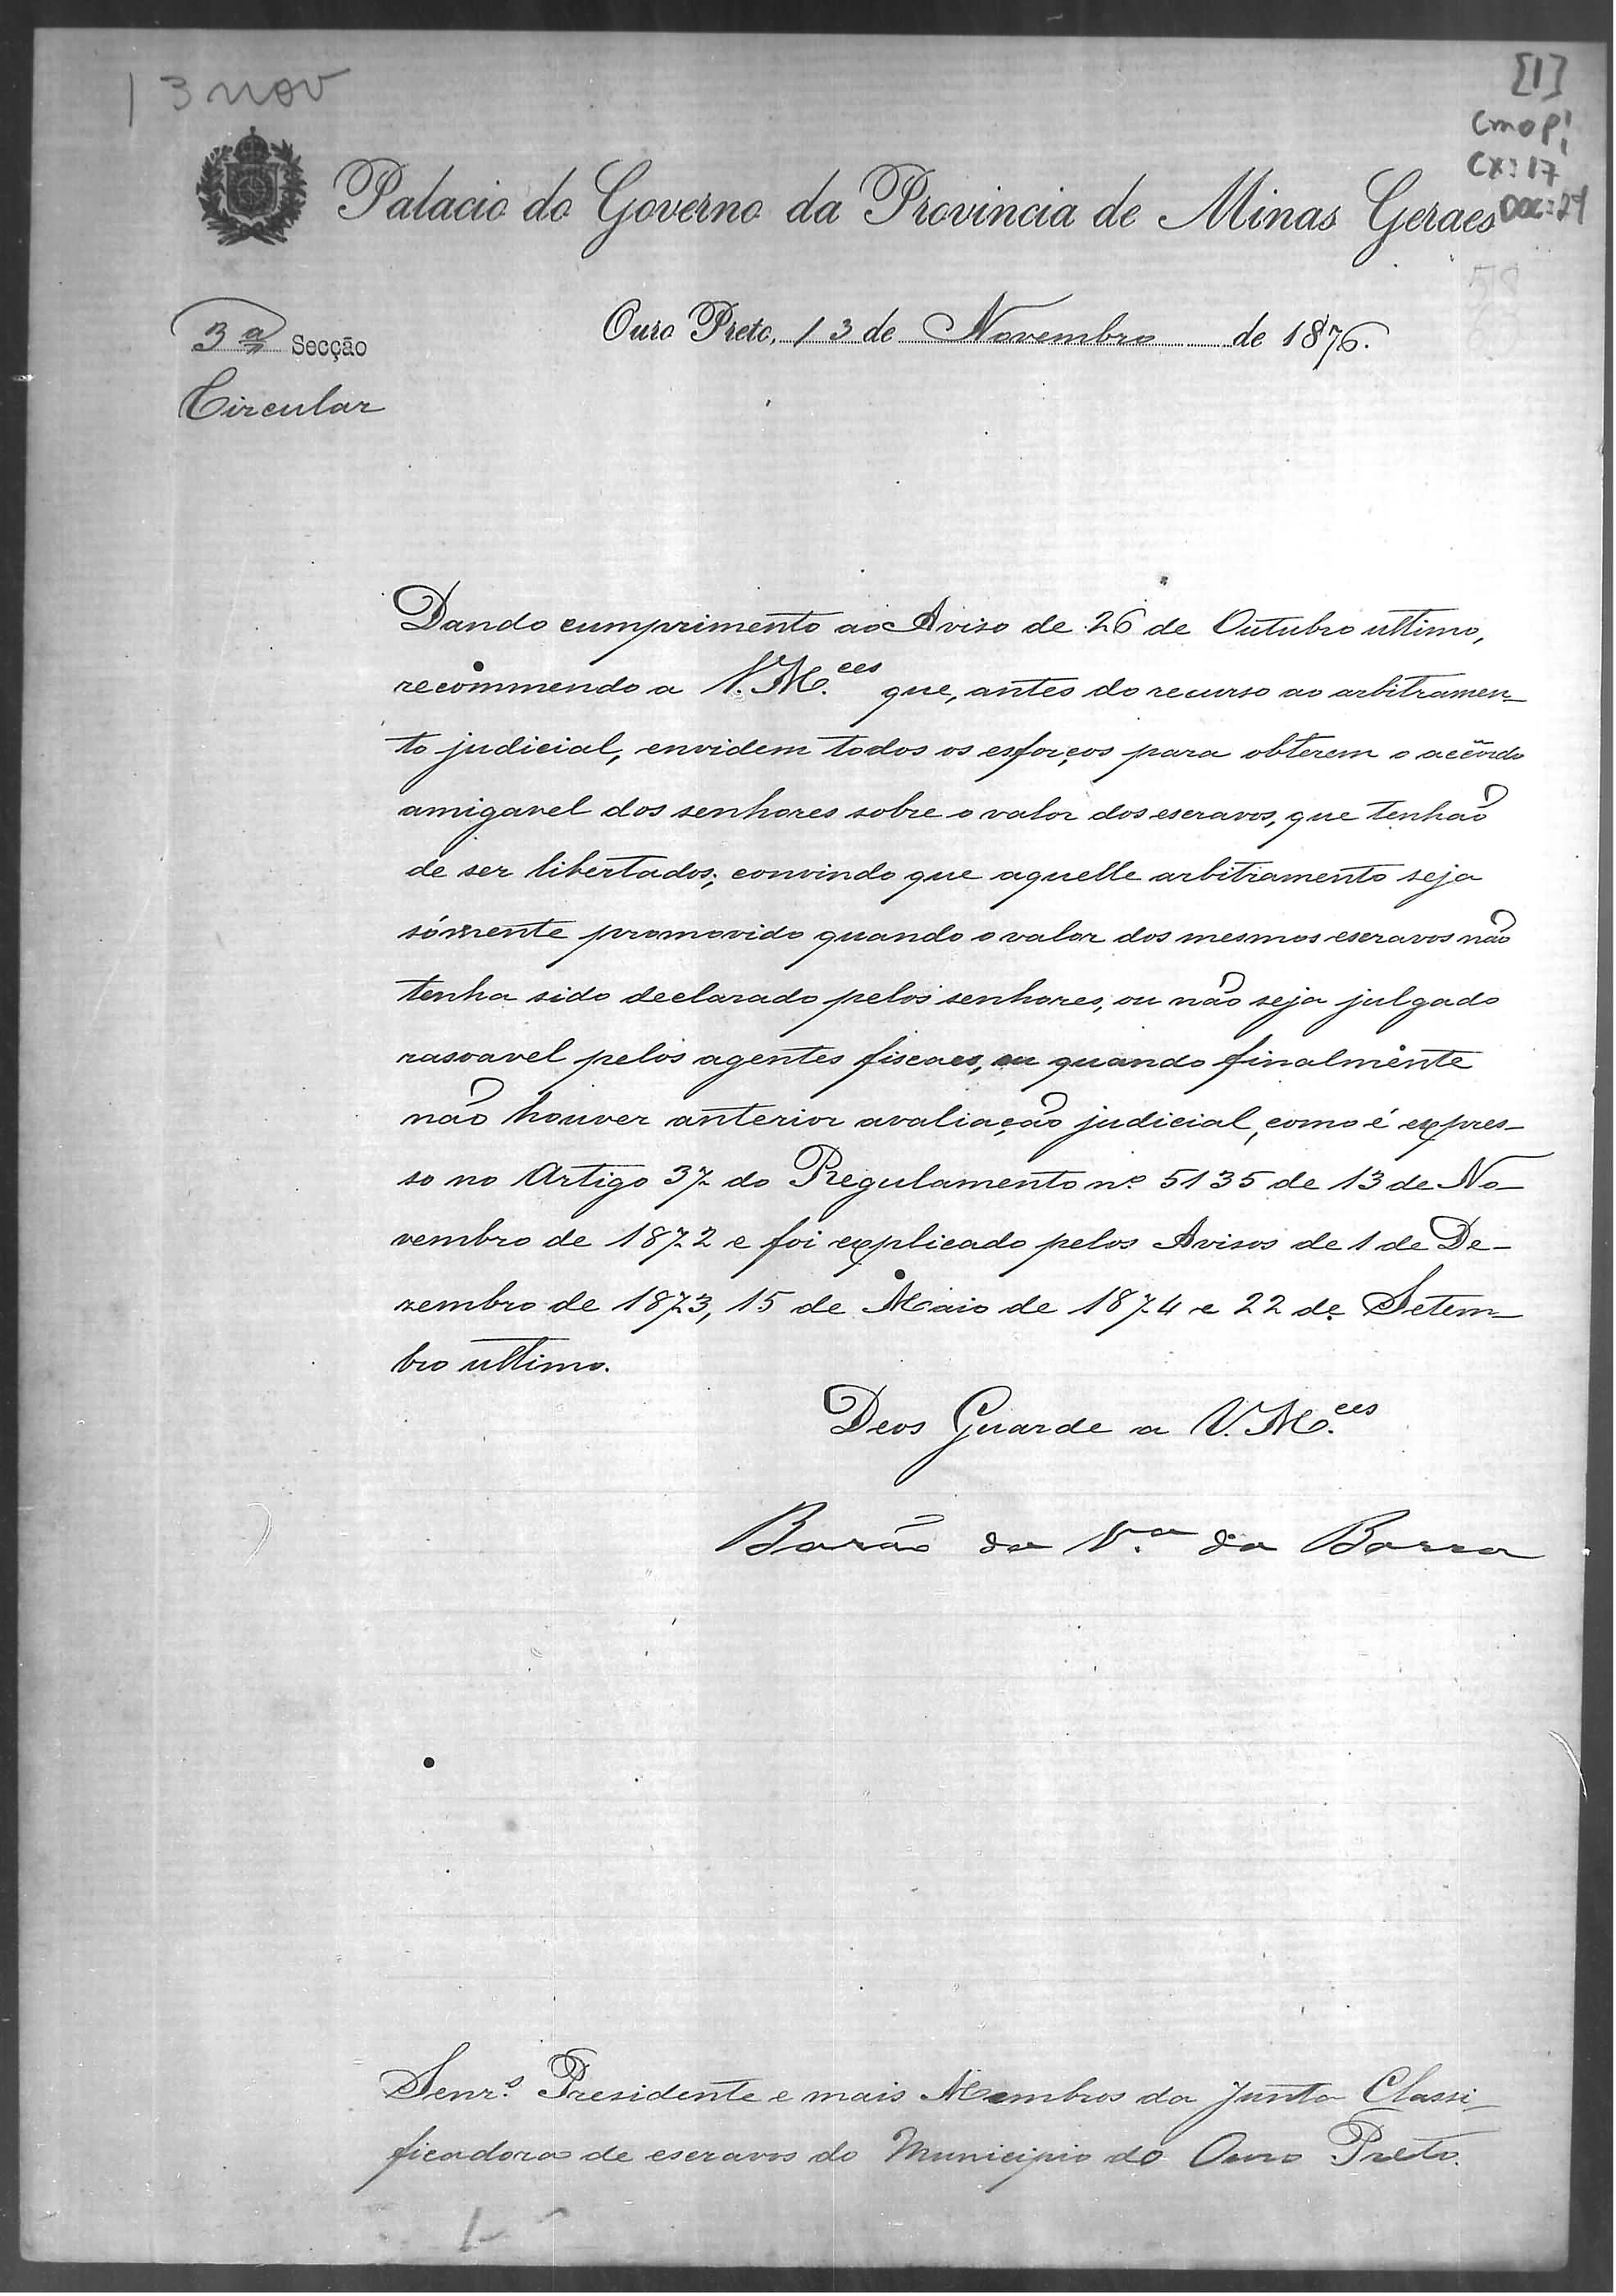 13 nov
[1]
CMOP
CX: 17
DOC: 24
Palacio do Governo da Provincia de Minas Geraes
3ª Secção
Ouro Preto, 13 de Novembro de 1876.
Circular
Dando cumprimento ao Aviso de 26 de Outubro ultimo,
recommendo a V. M.ces que, antes do recurso ao arbitramen-
to judicial, envidem todos os esforços para obterem o accôrdo
amigavel dos senhores sobre o valor dos escravos, que tenhão
de ser libertados; convindo que aquelle arbitramento seja
sómente promovido quando o valor dos mesmos escravos não
tenha sido declarado pelos senhores, ou não seja julgado
rasoavel pelos agentes fiscaes, ou quando finalmente
não houver anterior avaliação judicial, como é expres-
so no Artigo 37 do Regulamento nº 5135 de 13 de No-
vembro de 1872 e foi explicado pelos Avisos de 1 de De-
zembro de 1873, 15 de Maio de 1874 e 22 de Setem-
bro ultimo.
Deos Guarde a V. M.ces
Barão da V.a da Barra
Senr.s Presidente e mais Membros da Junta Classi-
ficadora de escravos do Municipio do Ouro Preto.